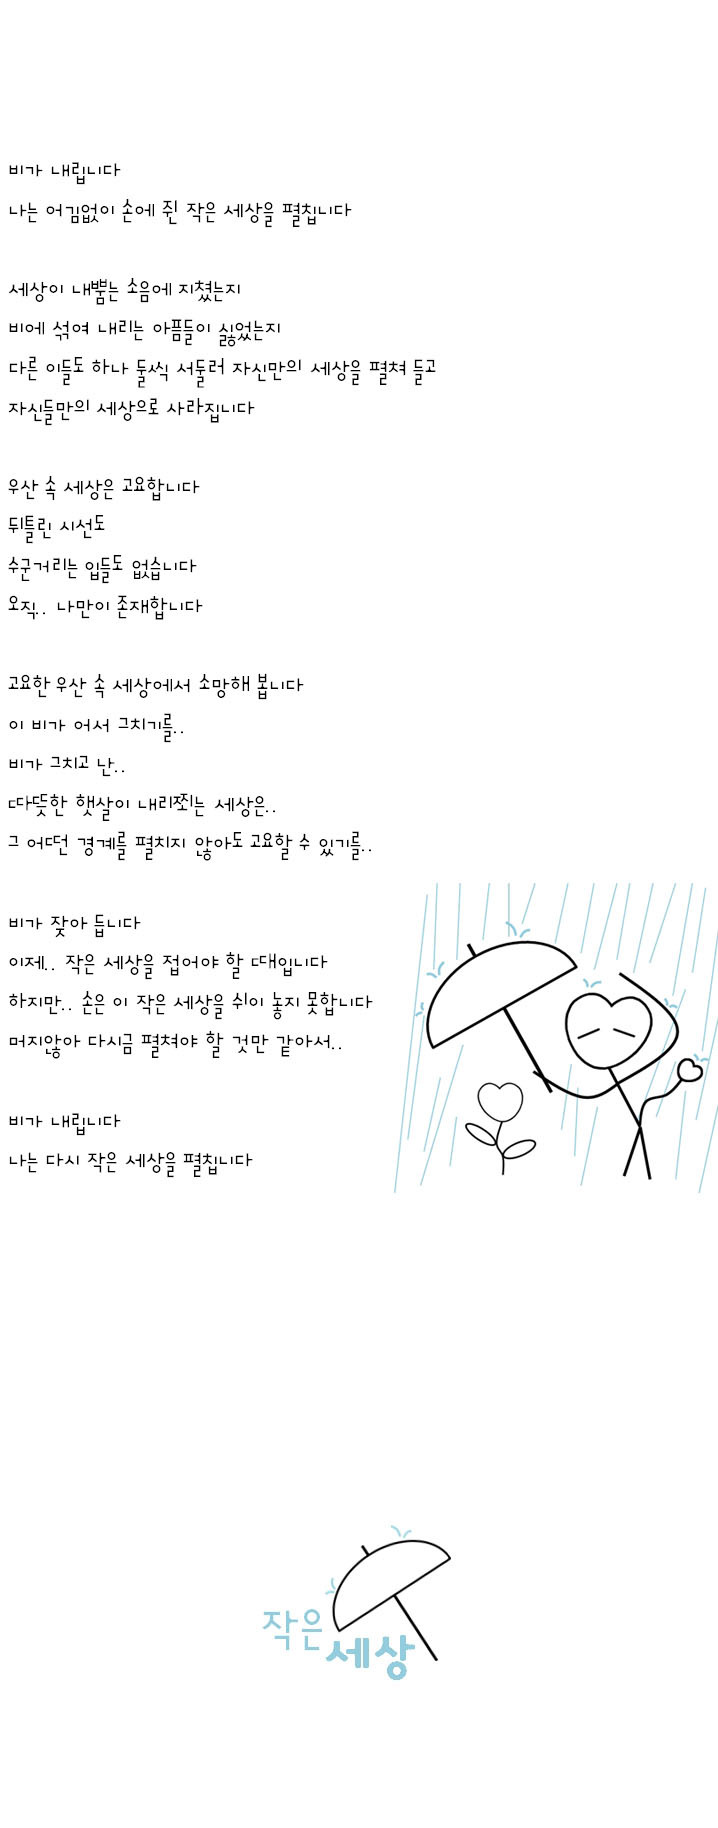 비가 내립니다
나는 어김없이 손에 쥔 작은 세상을 펼칩니다
세상이 내뿜는 소음에 지쳤는지
비에 섞여 내리는 아픔들이 싫었는지
다른 이들도 하나 둘씩 서둘러 자신만의 세상을 펼쳐 들고
자신들만의 세상으로 사라집니다
우산 속 세상은 고요합니다
뒤틀린 시선도
수군거리는 입들도 없습니다
오직.. 나만이 존재합니다
고요한 우산 속 세상에서 소망해 봅니다
이 비가 어서 그치기를..
비가 그치고 난..
따뜻한 햇살이 내리쬐는 세상은..
그 어떤 경계를 펼치지 않아도 고요할 수 있기를..
비가 잦아 듭니다
이제.. 작은 세상을 접어야 할 때입니다
하지만.. 손은 이 작은 세상을 쉬이 놓지 못합니다
머지않아 다시금 펼쳐야 할 것만 같아서..
비가 내립니다
나는 다시 작은 세상을 펼칩니다
작은
세상